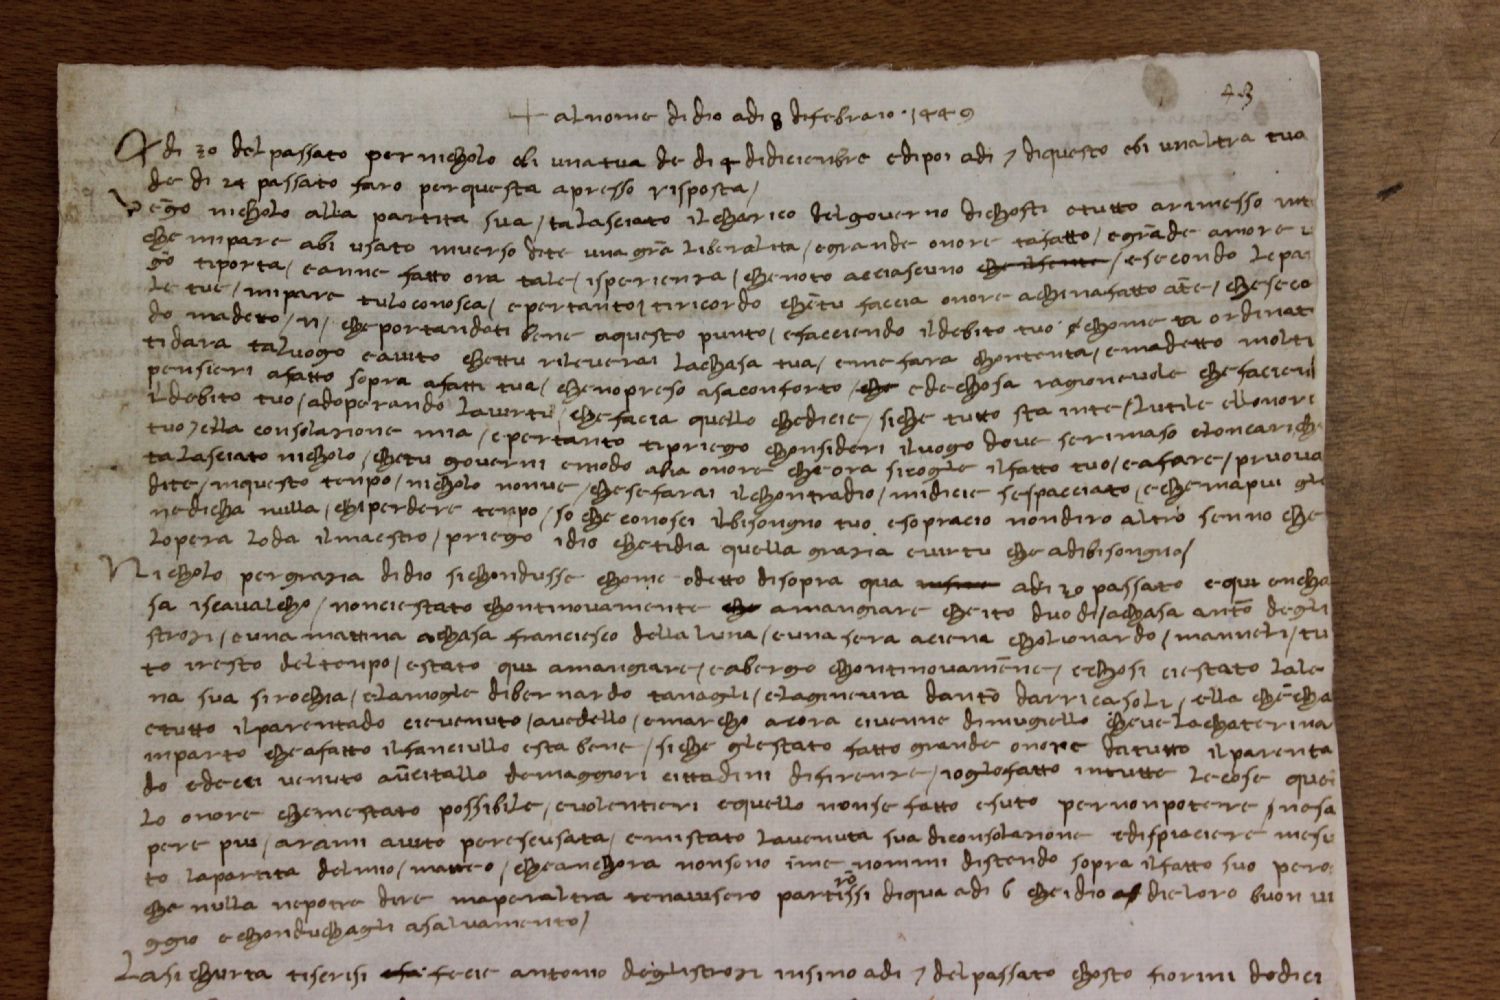 43
+ al nome di dio adi 8 di febraio 1449
Adi 20 del passato per nicholo ebi una tua de di 4 di diciembre e dipoi adi 7 di questo ebi un altra tua
de di 24 passato faro per questa apresso risposta /
Vegho nicholo alla partita sua / ta lasciato il charico del governo di chosti e tutto a rimesso inte
che mi pare abi usato inverso di te una grã liberalita / e grande onore ta fatto / e grãde amore
ti porta / e anne fatto ora tale / isperienza / che noto a cciascuno / e secondo le pa
le tue / mi pare tu lo conosca / e pertanto ti ricordo che tu faccia onore a chi na fatto a tte / che seco
do ma detto / n / che portandoti bene a questo punto / e facciendo il debito tuo chome ta ordinat
ti dara ta luogo e aiuto chettu rileverai la chasa tua / e me fara chontenta / e ma detto molti
pensieri a fatto sopra a fatti tua / che no preso asa conforto / ed e chosa ragionevole che facien
il debito tuo / adoperando la virtu / che facia quello che dicie / siche tutto sta in te / l utile e ll onore
tuo / e lla consolazione mia / e pertanto ti priego chonsideri il luogo dove se rimaso e l oncaricho
ta lasciato nicholo / che tu governi e modo abia onore che ora si coglie il fatto tuo / e a fare / pruova
di te / in questo tenpo / nicholo non ve / che se farai il chontradio / mi dicie se spacciato / e che mapiu gle
ne dicha nulla / chi perdere tenpo / so che conosci il bisongno tuo e sopracio non diro altro senno che
l opera loda il maestro / priego idio che ti dia quella grazia e virtu che a di bisongno /
Nicholo per grazia di dio si chondusse chome o detto di sopra qua adi 20 passato e qui en cha
sa iscavalcho / non ci e stato chontinovamente a mangiare che ito duo di / a chasa anto degli
strozi / e una mattina a chasa franciesco della luna / e una sera a ciena cho lionardo / manneli / tu
to i resto del tenpo / e stato qui a mangiare / e abergo chontinovamẽne / e chosi ci e stato la le
na sua sirochia / e la mogle di bernardo tanagli / e la ginevra d anto da rricasoli / e lla checha
e tutto il parentado ci e venuto / a vedello / e marcho ancora ci venne di mugiello che ve la chaterina
in parto che a fatto il fanciullo e sta bene / siche gl e stato fatto grande onore da tutto il parenta
do ed ecci venuto a vicitallo de maggiori cittadini di firenze / io gl o fatto in tutte le cose quel
lo onore che m e stato possibile / e volentieri e quello non se fatto e suto per non potere / no sa
pere piu / arami auto per scusata / e mi stato la venuta sua di consolazione e dispiaciere mesu
to la partita del mio / matteo / che anchora non sono ī me nommi distendo sopra il fatto suo pero
che nulla ne potre dire ma per altra te navisero partirõssi di qua adi 6 che idio die loro buon vi
ggio e chonduchagli a salvamento /
La sichurta ti scrisi fecie antonio degli strozi insino adi 7 del passato chosto fiorini dodici